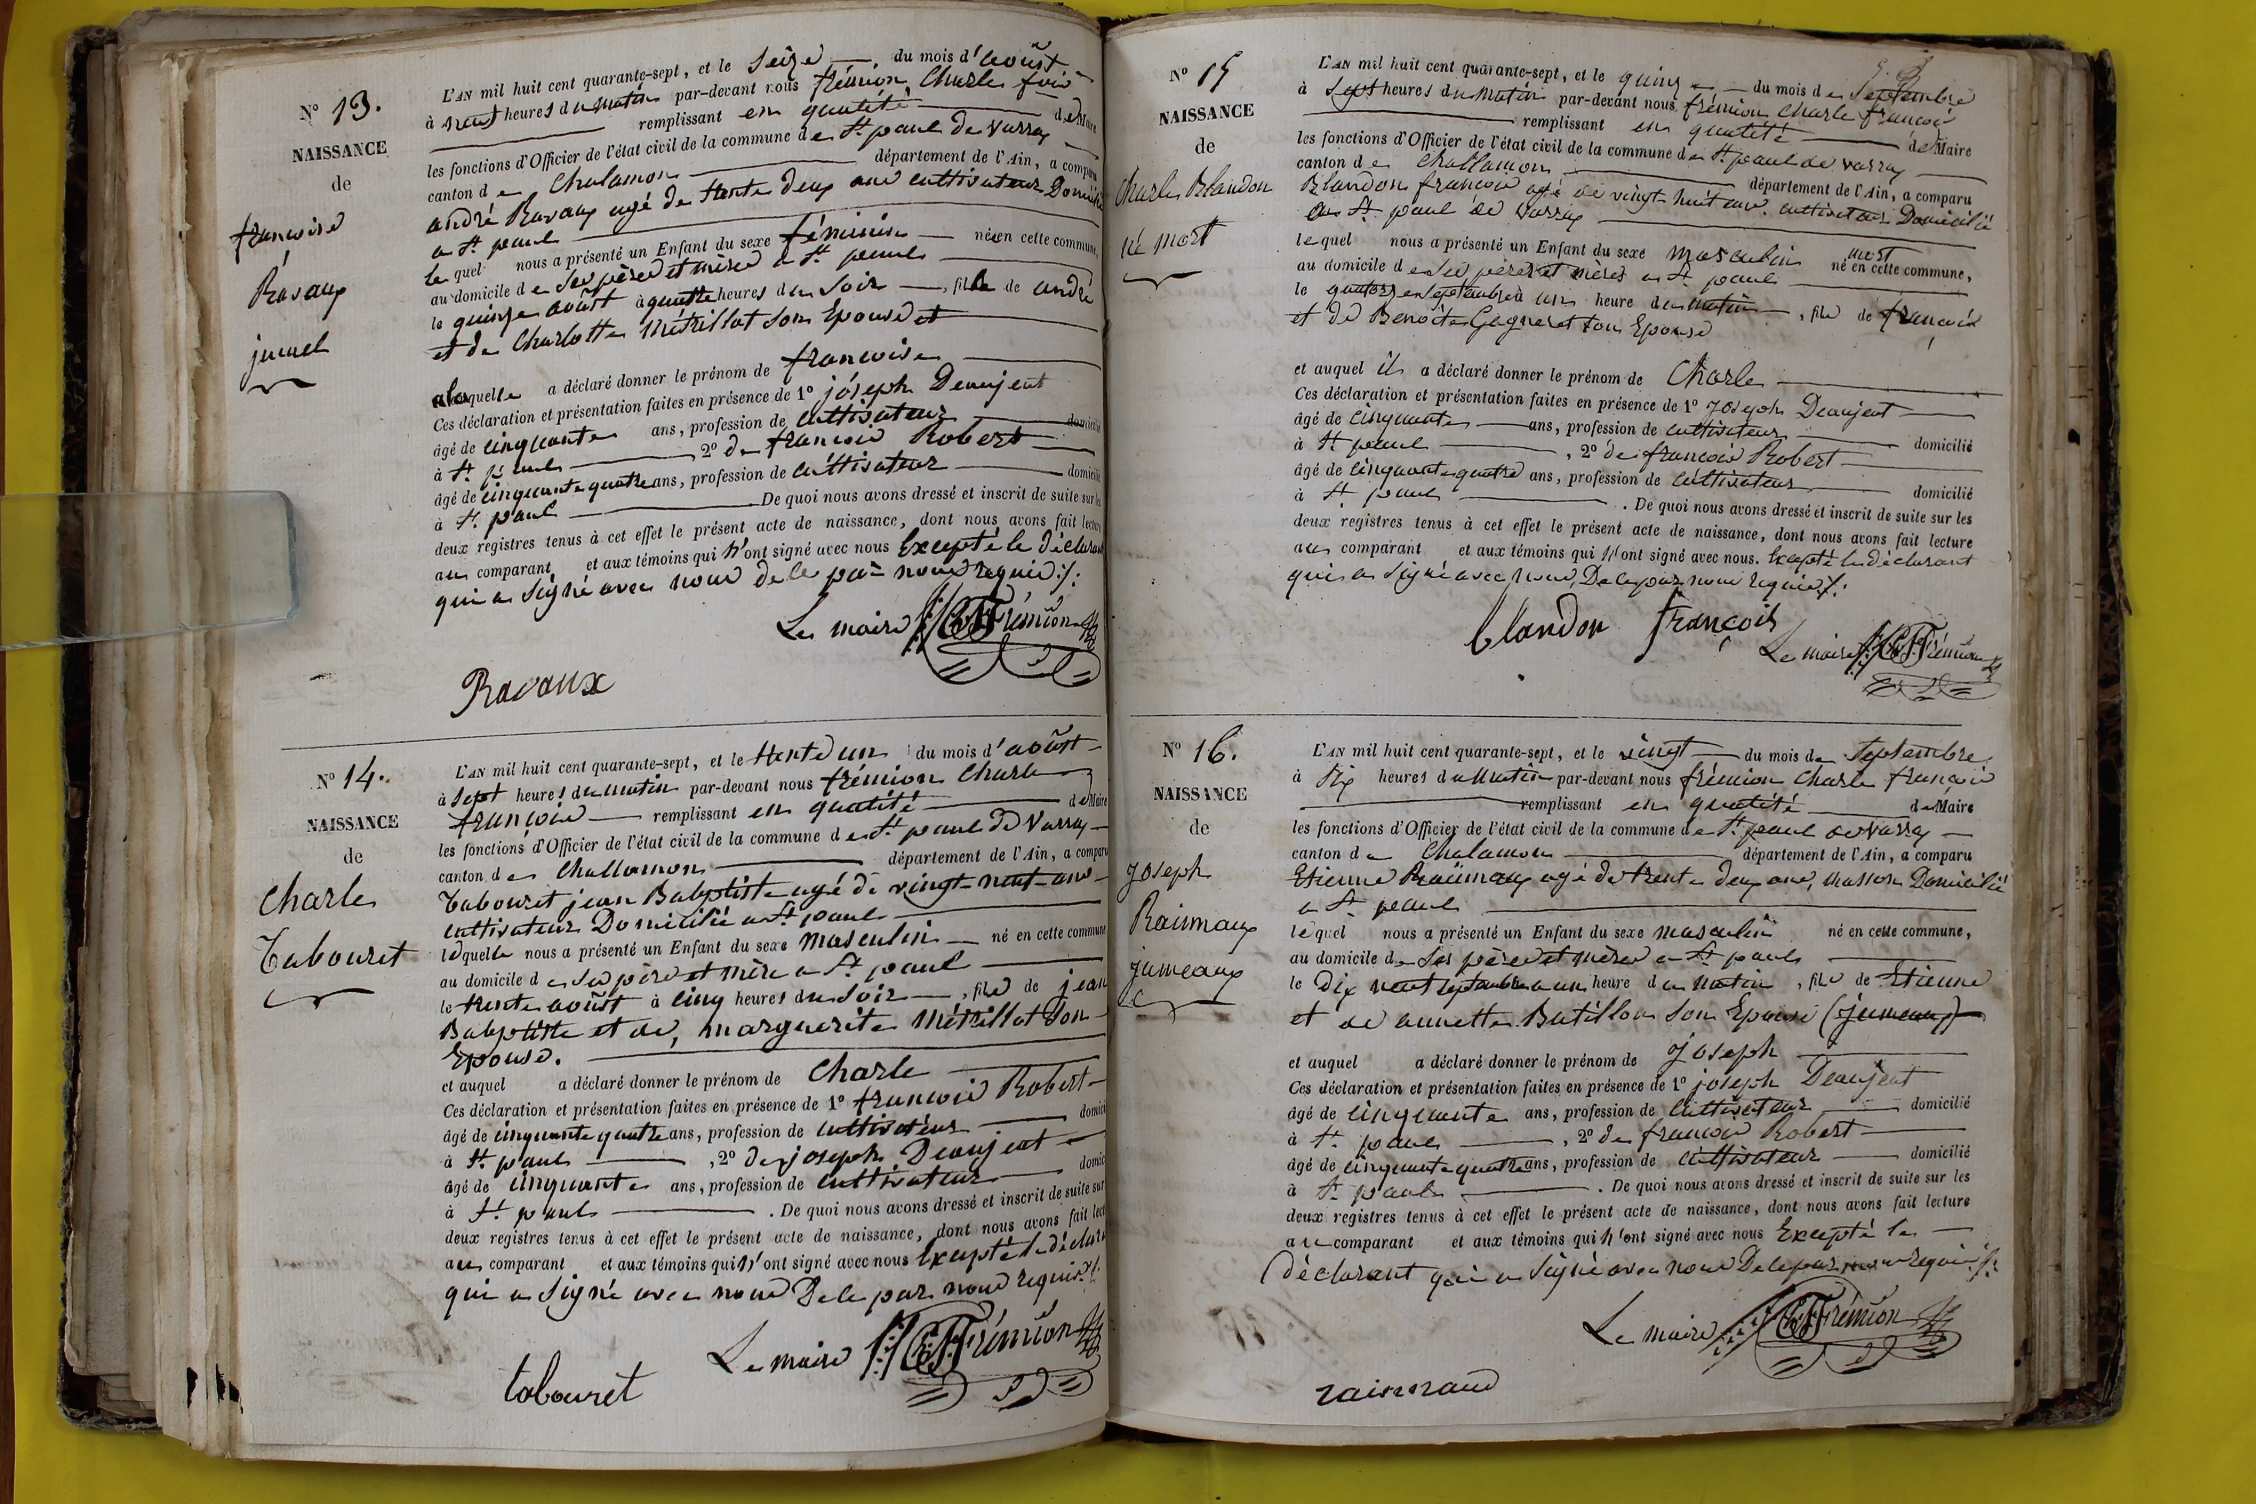 N° 13.
NAISSANCE
de
francoise
Ravaux
jumel
L'AN mil huit cent quarante-sept, et le Seize du mois d'août
à neuf heures du matin par-devant nous frémion Charle fois
remplissant en qualité de Maire
les fonctions d'Officier de l'état civil de la commune de St paul de varax
canton de Chalamon département de l'Ain, a comparu
andré Ravaux agé de trente deux ans cultivateur Domicilié
a St paul
le quel nous a présenté un Enfant du sexe féminin née en cette commune,
au domicile de ses père et mère a St paul
le quinze août à quatre heures du soir, fille de andré
et de Charlotte Métrillot son Epouse et
a laquelle a déclaré donner le prénom de francoise
Ces déclaration et présentation faites en présence de 1° jóseph Deaujeat
âgé de cinquante ans, profession de cultivateur domicilié
à St paul, 2° de francois Robert
âgé de cinquante quatre ans, profession de cultivateur domicilié
à St paul De quoi nous avons dressé et inscrit de suite sur les
deux registres tenus à cet effet le présent acte de naissance, dont nous avons fait lecture
au comparant et aux témoins qui n'ont signé avec nous Excepté le déclarant
qui a signé avec nous de le par nous requis ./.
Le maire CF Frémion
Ravaux
N° 14.
NAISSANCE
de
Charle
Tabouret
L'AN mil huit cent quarante-sept, et le trente un du mois d'août
à sept heures du matin par-devant nous frémion Charle
francois remplissant en qualité de Maire
les fonctions d'Officier de l'état civil de la commune de St paul de Varax
canton de Challamon département de l'Ain, a comparu
Tabouret jean Babptiste agé de vingt-neuf-ans
cultivateur Domicilié a St paul
lequel nous a présenté un Enfant du sexe masculin né en cette commune
au domicile de ses père et mère a St paul
le trente août à cinq heures du soir, fils de jean
Babptiste et de, marguerite Métrillot son
Epouse.
et auquel a déclaré donner le prénom de Charle
Ces déclaration et présentation faites en présence de 1° francois Robert
âgé de cinquante quatre ans, profession de cultivateur domici
à St paul, 2° de joseph Deaujeat
âgé de cinquante ans, profession de cultivateur domic
à St paul. De quoi nous avons dressé et inscrit de suite sur
deux registres tenus à cet effet le présent acte de naissance, dont nous avons fait lect
au comparant et aux témoins qui n'ont signé avec nous Excepté le déclara
qui a signé avec nous De le par nous requis ./.
Le maire CF Frémion
tabouret
N° 15
NAISSANCE
de
Charle Blandon
né mort
L'AN mil huit cent quarante-sept, et le quinze du mois de Septembre
à Sept heures du matin par-devant nous frémion Charle francois
remplissant en qualité de Maire
les fonctions d'Officier de l'état civil de la commune de St paul de varax
canton de Challamon département de l'Ain, a comparu
Blandon francois agé de vingt-huit ans cultivateur Domicilié
a St paul de varax
lequel nous a présenté un Enfant du sexe masculin mort né en cette commune,
au domicile de ses père et mère a St paul
le quatorze septembre à une heure du matin, fils de francois
et de Benoite Gagneret son Epouse
et auquel il a déclaré donner le prénom de Charle
Ces déclaration et présentation faites en présence de 1° joseph Deaujeat
âgé de cinquante ans, profession de cultivateur domicilié
à St paul, 2° de francois Robert
âgé de cinquante quatre ans, profession de cultivateur domicilié
à St paul. De quoi nous avons dressé et inscrit de suite sur les
deux registres tenus à cet effet le présent acte de naissance, dont nous avons fait lecture
au comparant et aux témoins qui n'ont signé avec nous. Excepté le déclarant
qui a signé avec nous, De le par nous requis ./.
blandon françois
Le maire CF Frémion
N° 16.
NAISSANCE
de
joseph
Raimaux
jumeaux
L'AN mil huit cent quarante-sept, et le vingt du mois de Septembre
à Six heures du matin par-devant nous frémion Charle francois
remplissant en qualité de Maire
les fonctions d'Officier de l'état civil de la commune de St paul de varax
canton de Chalamon département de l'Ain, a comparu
Etienne Raimaux agé de trente deux ans, masson Domicilié
a St paul
lequel nous a présenté un Enfant du sexe masculin né en cette commune,
au domicile de ses père et mère a St paul
le Dix neuf septembre a une heure du matin, fils de Etienne
et de annette Batillon son Epouse (jumeaux)
et auquel a déclaré donner le prénom de joseph
Ces déclaration et présentation faites en présence de 1° joseph Deaujeat
âgé de cinquante ans, profession de cultivateur domicilié
à St paul, 2° de francois Robert
âgé de cinquante quatre ans, profession de cultivateur domicilié
à St paul. De quoi nous avons dressé et inscrit de suite sur les
deux registres tenus à cet effet le présent acte de naissance, dont nous avons fait lecture
au comparant et aux témoins qui n'ont signé avec nous Excepté le
déclarant qui a signé avec nous De le par nous requis ./.
Le maire CF Frémion
raimaud